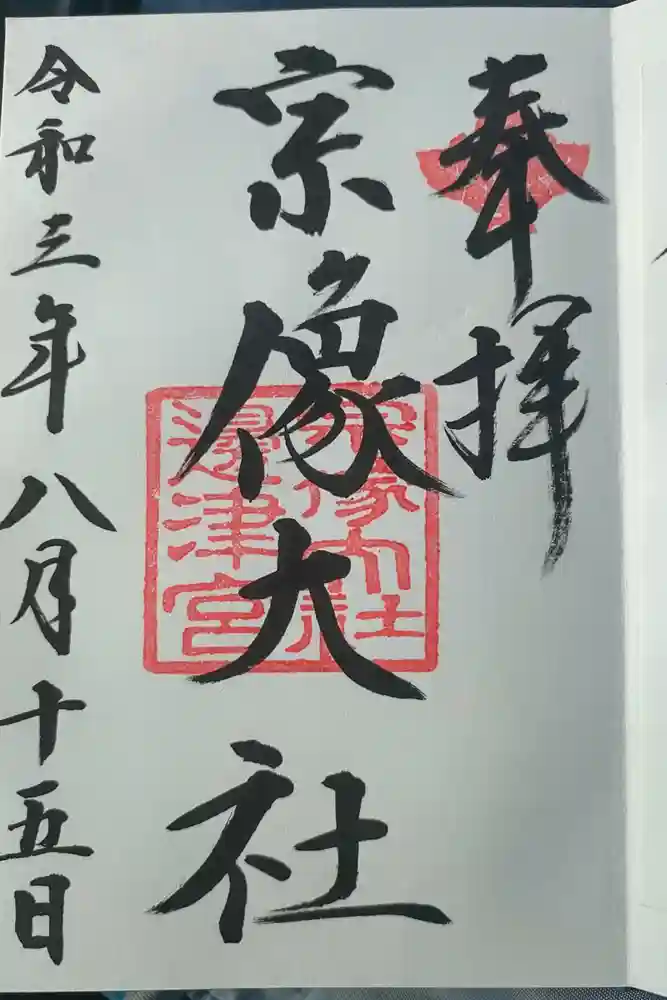 奉拝
宗像大社
宗像大社
邊津宮
令和三年八月十五日